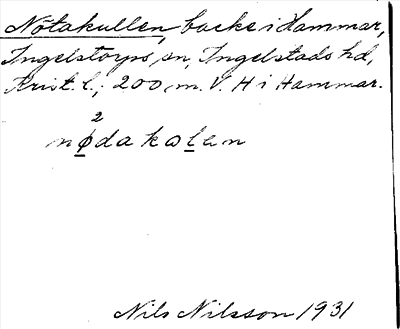 Notakullen, backe i Hammar,
Ingelstorps sn, Ingelstads hd,
Krist. l.; 200 m. V. H i Hammar.
2
nødakalen
Nils Nilsson 1931